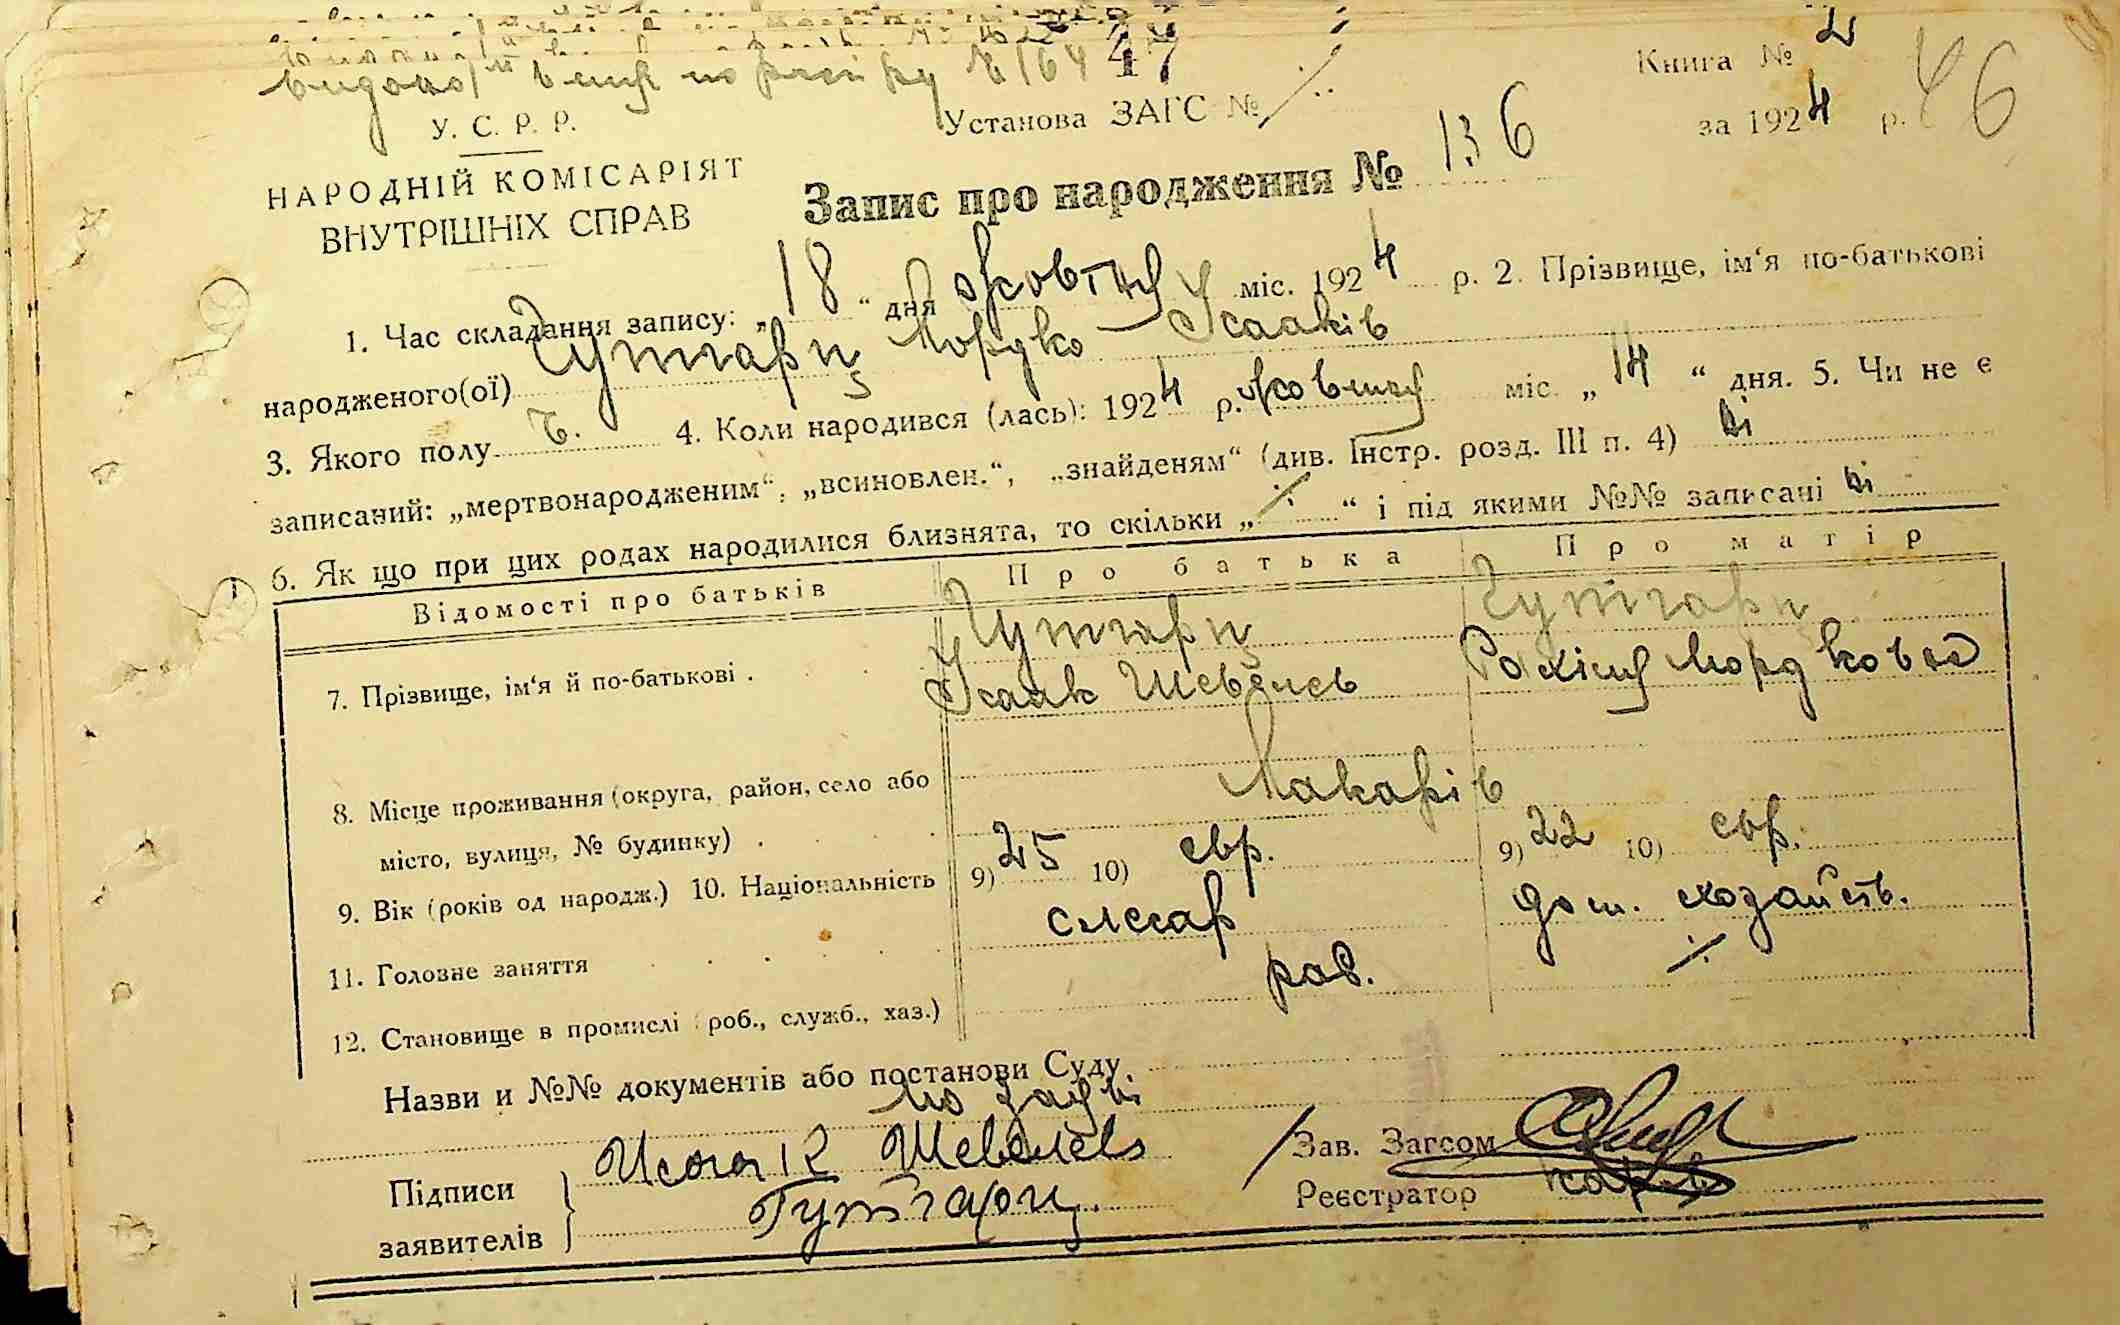 47
Книга № 2
У. С. Р. Р.
Установа ЗАГС №
за 1924 р. 46
НАРОДНІЙ КОМІСАРІЯТ
ВНУТРІШНІХ СПРАВ
Запис про народження № 136
1. Час складання запису: „ 18 “ дня Жовтня міс. 1924 р. 2. Прізвище, ім‘я по-батькові
народженого(ої) Гутгарц Мордко Ісааків
3. Якого полу ч. 4. Коли народився (лась): 1924 р. Жовтня міс. „ 14 “ дня. 5. Чи не є
записаний: „мертвонародженим“, „всиновлен.“, „знайденям“ (див. Інстр. розд. III п. 4) ні
6. Як що при цих родах народилися близнята, то скільки „ “ і під якими №№ записані ні
Відомості про батьків Про батька Про матір
7. Прізвище, ім‘я й по-батькові . Гутгарц Гутгарц
Ісаак Шевелев Рахіля Мордковна
8. Місце проживання (округа, район, село або
місто, вулиця, № будинку) . Макарів
9. Вік (років од народж.) 10. Національність 9) 25 10) євр. 9) 22 10) євр.
11. Головне заняття слесар дом. хозайств.
12. Становище в промислі (роб., служб., хаз.) роб.
Назви и №№ документів або постанови Суду
по заяві
Підписи
заявителів
Исаак Шевелев
Гутгарц.
Зав. Загсом
Реєстратор